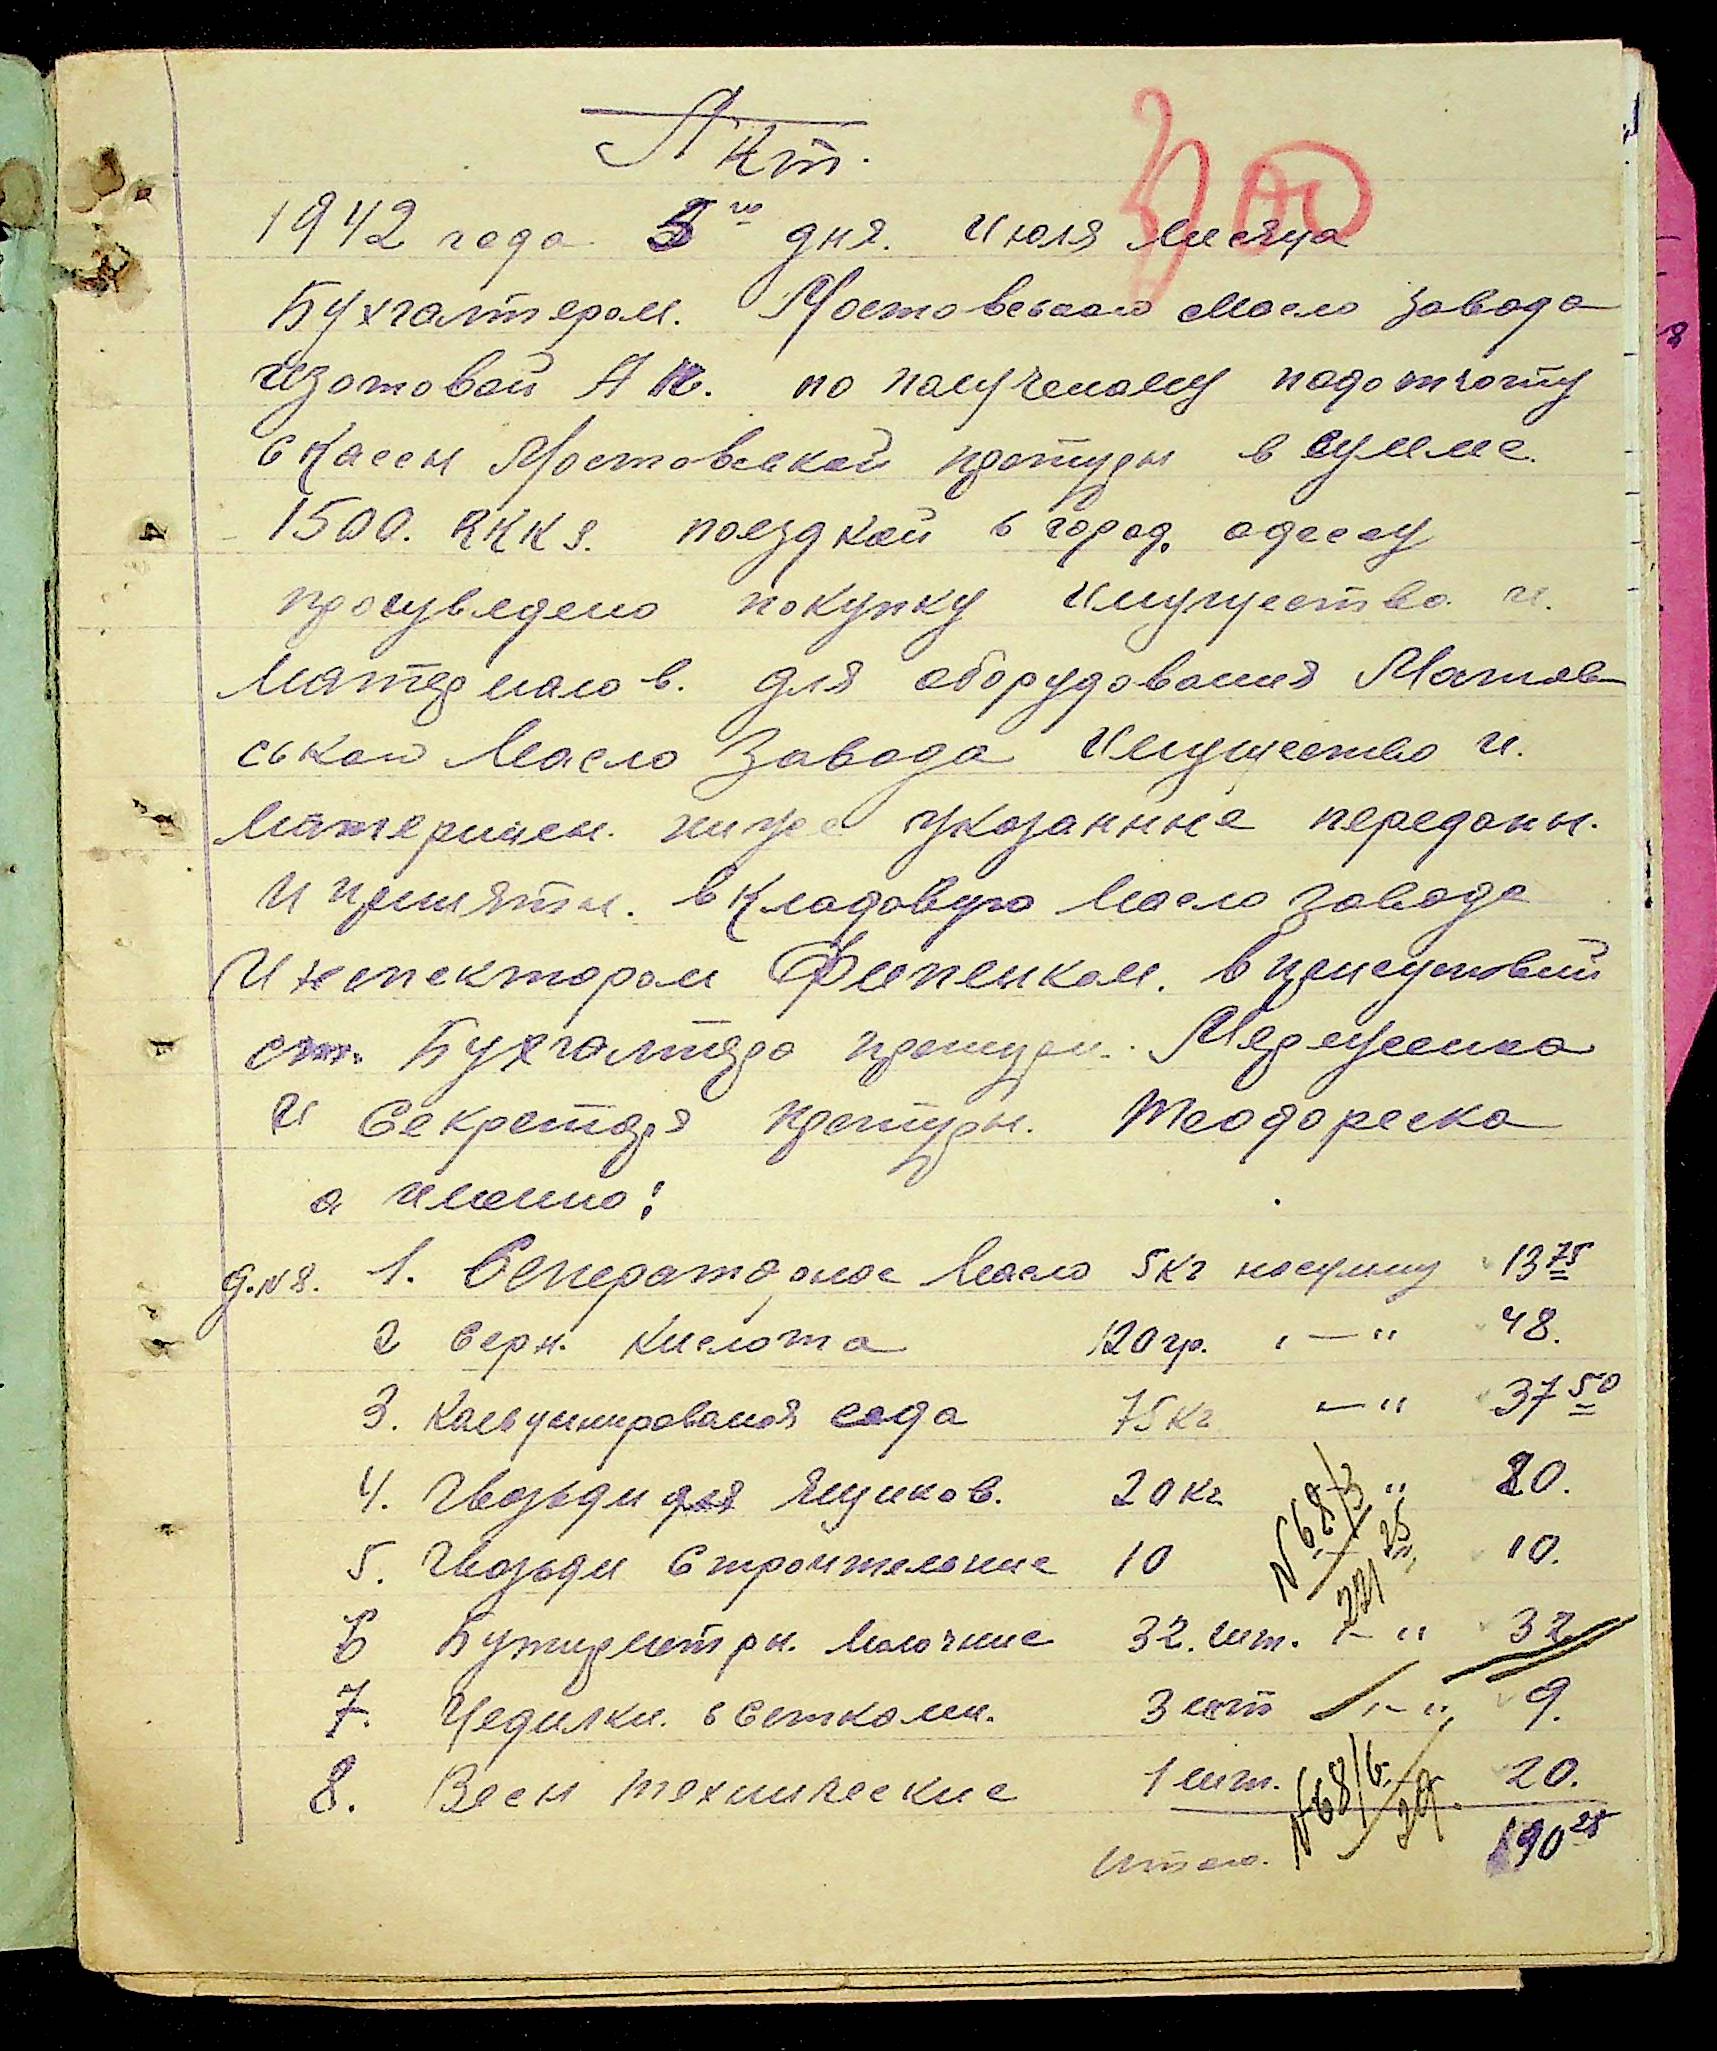 Акт.
1942 года 5го дня. Июля Месяца
Бухгалтером. Мостовського Масло завода
Изотовой А К. по полученому подотчоту
с Кассы Мостовской претуры в сумме.
1500. RKKS. поездкой в город. одессу
произведено покупку Имущества и.
Материалов. для оборудования Мостов-
ськаго Масло Завода Имущество и.
Материалы. ниже указанные переданы.
и приняты. в Кладовую Масло завода
Инспектором Филенком. в присутствии
ст. Бухгалтера претуры.
и Секретаря претуры. Теодореско
а именно:
д.№8. 1. Сеператорное Масло 5кг на сумму 13 75
2 Серн. Кислота 120гр. „ — " 48.
3. Кальцинированая сода 75кг — " 37 50
4. Гвозьди для Ящиков. 20кг " 20.
5. Гвозьди Строительные 10 10.
N 68/3
221 25
6 Бутирметры. Молочные 32. шт. — " 32
7. Цедилки. с Сетками. 3 шт „ — " 9.
8. Весы технические 1 шт. 20.
N 68/6
29.
Итого. 190 25